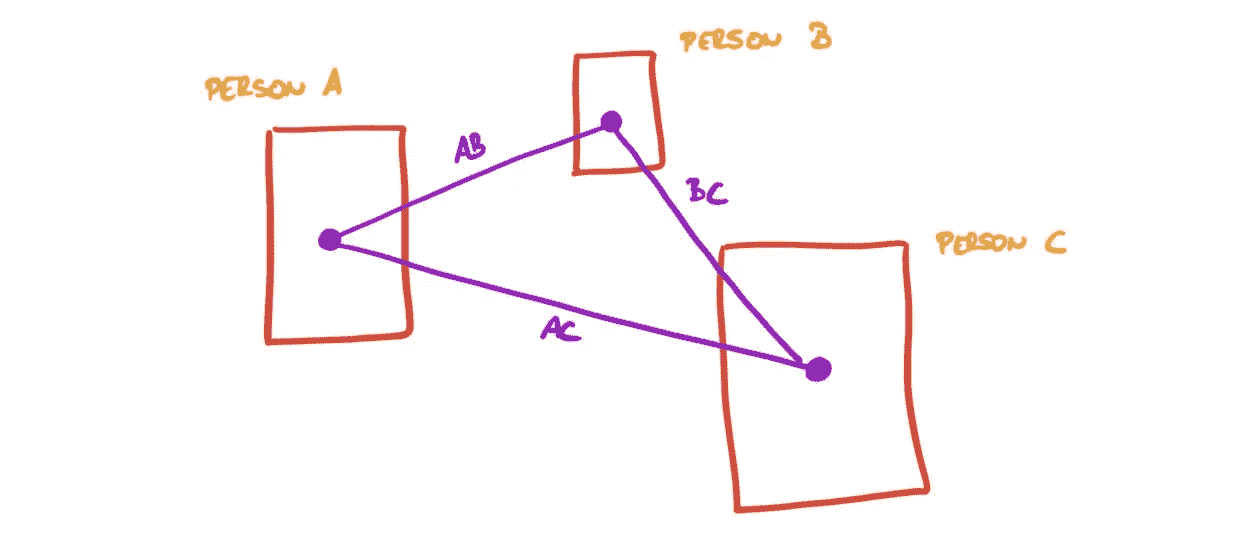 PERSON B
PERSON A
AB
BC
PERSON C
AC